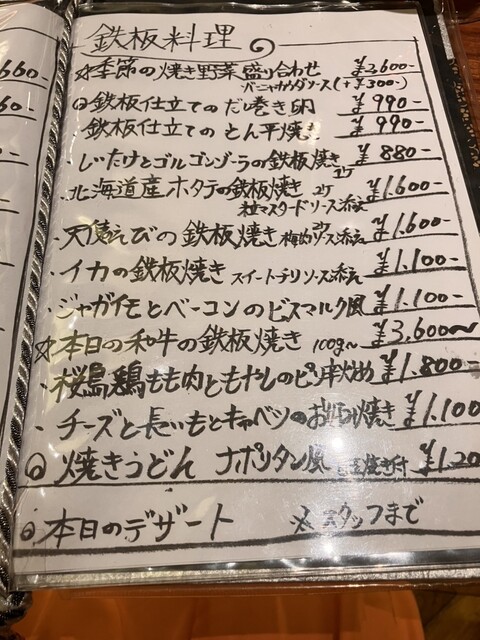 660-
60-
鉄板料理
☆季節の焼き野菜盛り合わせ ¥2,600-
バーニャカウダソース(+¥300-)
◎鉄板仕立てのだし巻き卵 ¥990-
鉄板仕立てのとん平焼き ¥990-
・しいたけとゴルゴンゾーラの鉄板焼き 2ケ ¥880-
・北海道産ホタテの鉄板焼き 2ケ ¥1,600-
粒マスタードソース添え
・天使えびの鉄板焼き 梅肉ソース添え ¥1,600-
・イカの鉄板焼き スイートチリソース添え ¥1,100-
・ジャガイモとベーコンのビスマルク風 ¥1,100-
☆本日の和牛の鉄板焼き 100g~ ¥3,600~
・桜島鶏もも肉ともやしのピリ辛炒め ¥1,800-
・チーズと長いもとキャベツのお好み焼き ¥1,100
◎焼きうどん ナポリタン風 焼き付 ¥1,20
◎本日のデザート ※スタッフまで